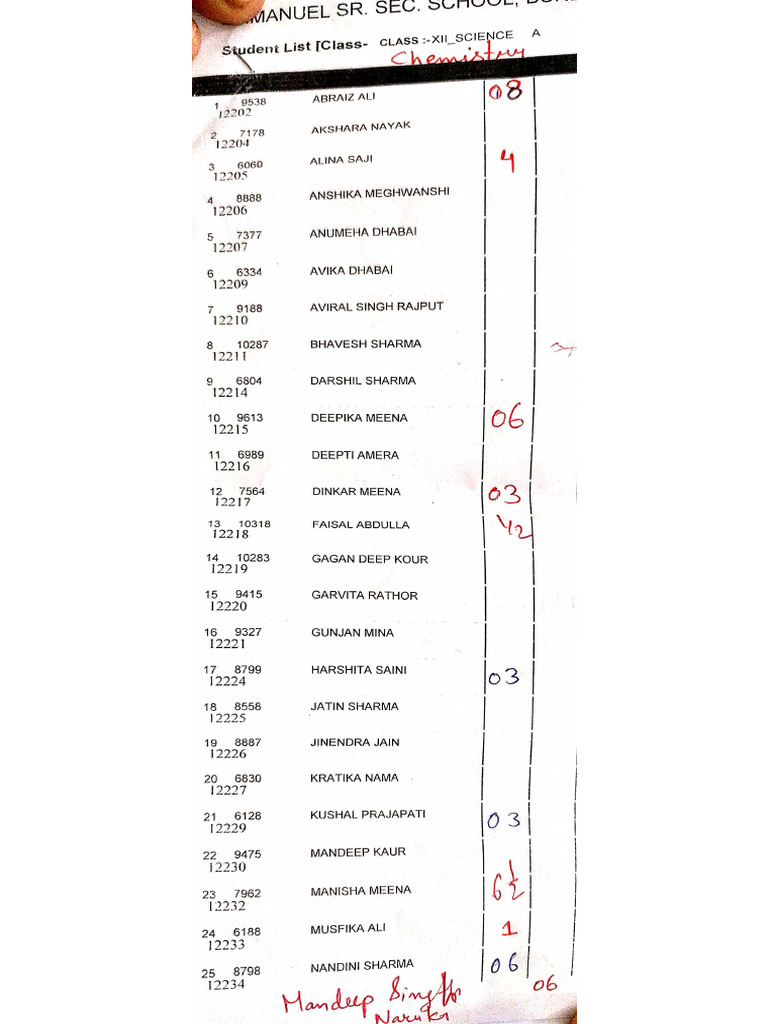 MANUEL SR. SEC. SCHOOL,
Student List [Class- CLASS :-XII_SCIENCE A
Chemistry
1 9538 ABRAIZ ALI 08
12202
2 7178 AKSHARA NAYAK
12204
3 6060 ALINA SAJI 4
12205
4 8888 ANSHIKA MEGHWANSHI
12206
5 7377 ANUMEHA DHABAI
12207
6 6334 AVIKA DHABAI
12209
7 9188 AVIRAL SINGH RAJPUT
12210
8 10287 BHAVESH SHARMA
12211
9 6804 DARSHIL SHARMA
12214
10 9613 DEEPIKA MEENA 06
12215
11 6989 DEEPTI AMERA
12216
12 7564 DINKAR MEENA 03
12217
13 10318 FAISAL ABDULLA 1/2
12218
14 10283 GAGAN DEEP KOUR
12219
15 9415 GARVITA RATHOR
12220
16 9327 GUNJAN MINA
12221
17 8799 HARSHITA SAINI 03
12224
18 8558 JATIN SHARMA
12225
19 8887 JINENDRA JAIN
12226
20 6830 KRATIKA NAMA
12227
21 6128 KUSHAL PRAJAPATI 03
12229
22 9475 MANDEEP KAUR
12230
23 7962 MANISHA MEENA 6 1/2
12232
24 6188 MUSFIKA ALI 1
12233
25 8798 NANDINI SHARMA 06
12234
Mandeep Singh 06
Naruka